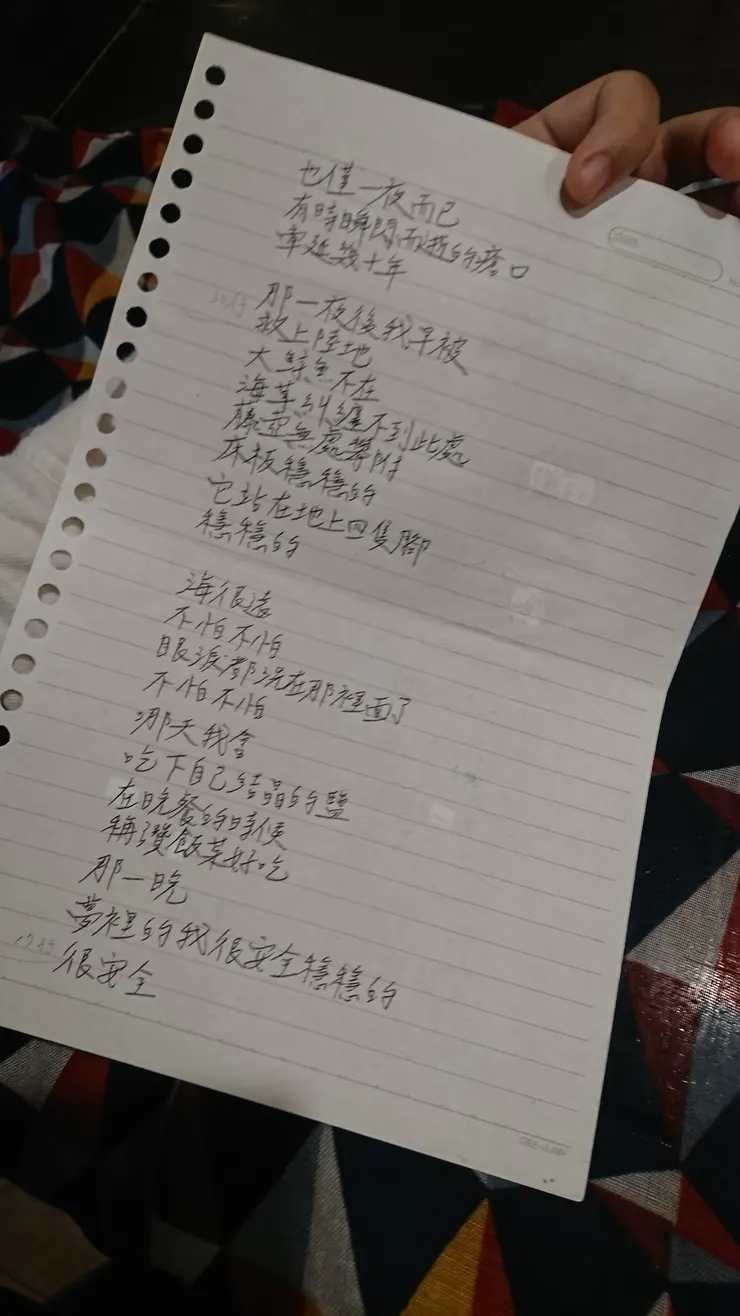 也僅一夜而已
有時瞬間而逝的瘡口
牽延幾十年
那一夜後我早被
救上陸地
大鯨魚不在
海草糾纏不到此處
藤壺無處攀附
床板穩穩的
它站在地上四隻腳
穩穩的
海很遠
不怕不怕
眼淚都流在那裡面了
不怕不怕
哪天我會
吃下自己結晶的鹽
在晚餐的時候
稱讚飯菜好吃
那一晚
夢裡的我很安全穩穩的
很安全